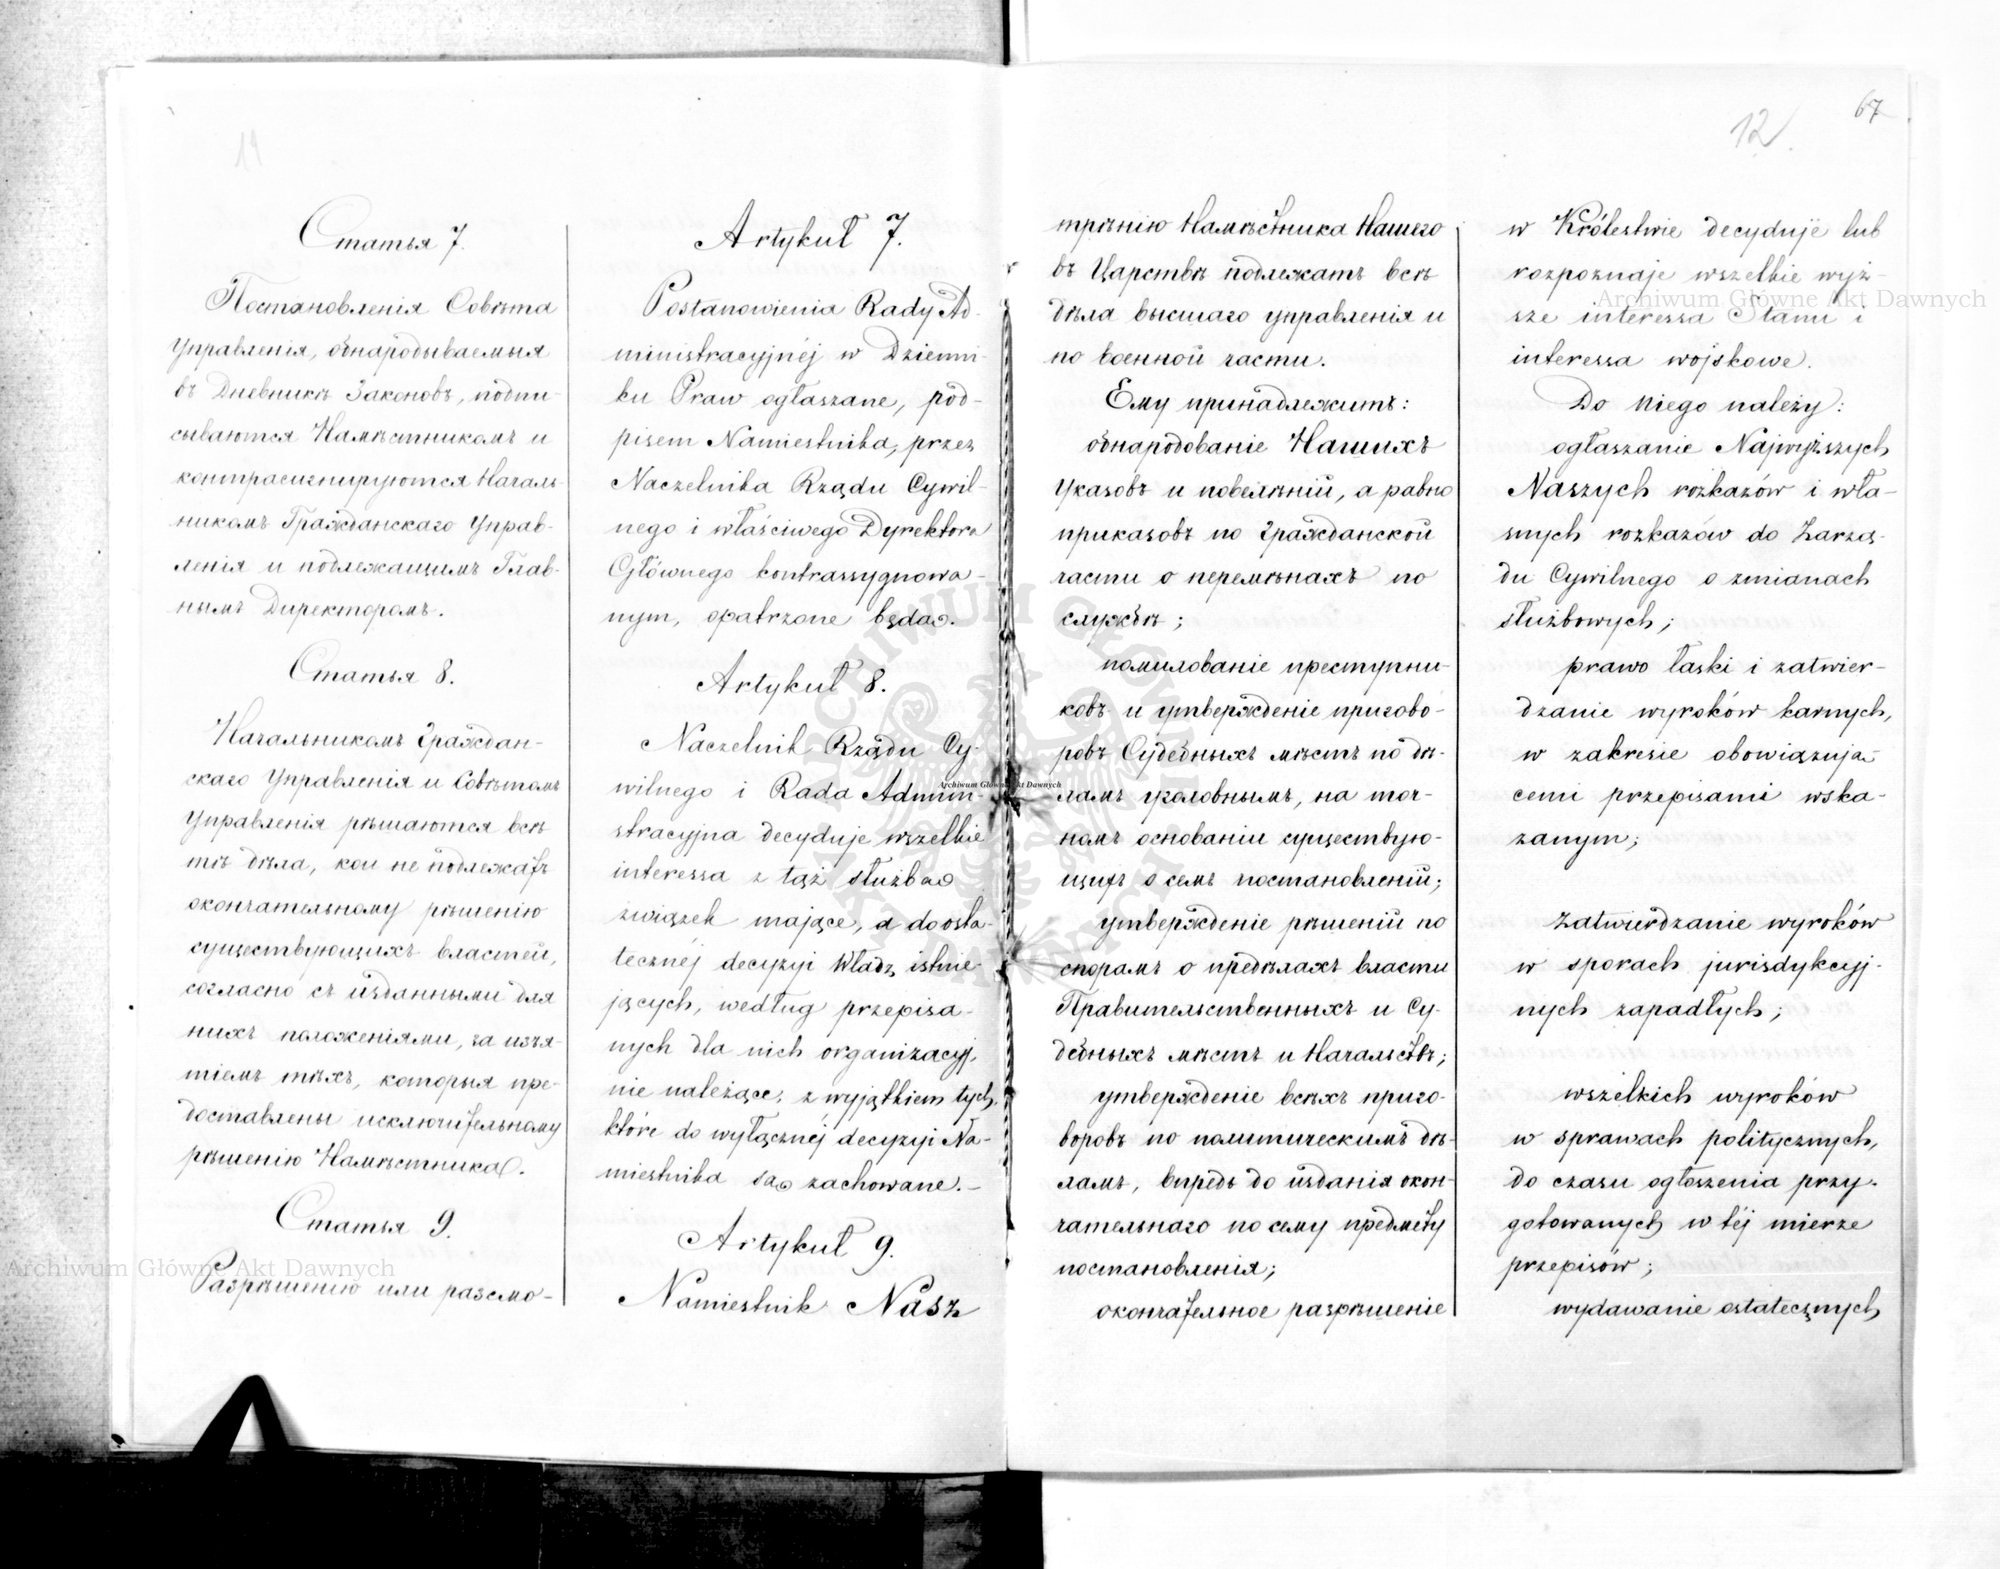 11
Статья 7.
Постановленія Совѣта
Управленія, обнародываемыя
въ Дневникѣ Законовъ, подпи-
сываются Намѣстникомъ и
контрасигнируются Началь-
никомъ Гражданскаго Управ-
ленія и подлежащимъ Глав-
нымъ Директоромъ.
Статья 8.
Начальникомъ Граждан-
скаго Управленія и Совѣтомъ
Управленія рѣшаются всѣ
тѣ дѣла, кои не подлежатъ
окончательному рѣшенію
существующихъ властей,
согласно съ изданными для
нихъ положеніями, за изъя-
тіемъ тѣхъ, которыя пре-
доставлены исключительному
рѣшенію Намѣстника.
Статья 9.
Разрѣшенію или разсмо-
Artykuł 7.
Postanowienia Rady Ad-
ministracyjnéj w Dzienni-
ku Praw ogłaszane, pod-
pisem Namiestnika, przez
Naczelnika Rządu Cywil-
nego i właściwego Dyrektora
Głównego kontrassygnowa-
nym, opatrzone będą.
Artykuł 8.
Naczelnik Rządu Cy-
wilnego i Rada Admini-
stracyjna decyduje wszelkie
interessa z tąż służbą
związek mające, a do osta-
tecznéj decyzyi Władz istnie-
jących, według przepisa-
nych dla nich organizacyj,
nie należące, z wyjątkiem tych,
które do wyłącznéj decyzyi Na-
miestnika są zachowane.-
Artykuł 9.
Namiestnik Nasz
67
12.
трѣнію Намѣстника Нашего
въ Царствѣ подлежатъ всѣ
дѣла высшаго управленія и
по военной части.
Ему принадлежитъ:
обнародованіе Нашихъ
Указовъ и повелѣній, а равно
приказовъ по гражданской
части о перемѣнахъ по
службѣ;
помилованіе преступни-
ковъ и утвержденіе пригово-
ровъ Судебныхъ мѣстъ по дѣ-
ламъ уголовнымъ, на точ-
номъ основаніи существую-
щихъ о семъ постановленій;
утвержденіе рѣшеній по
спорамъ о предѣлахъ власти
Правительственныхъ и Су-
дебныхъ мѣстъ и Начальствъ;
утвержденіе всѣхъ приго-
воровъ по политическимъ дѣ-
ламъ, впредь до изданія окон-
чательнаго по сему предмету
постановленія;
окончательное разрѣшеніе
w Królestwie decyduje lub
rozpoznaje wszelkie wyż-
sze interessa Stanu i
interessa wojskowe.
Do Niego należy:
ogłaszanie Najwyższych
Naszych rozkazów i wła-
snych rozkazów do Zarzą-
du Cywilnego o zmianach
służbowych;
prawo łaski i zatwier-
dzanie wyroków karnych,
w zakresie obowiązują-
cemi przepisami wska-
zanym;
zatwierdzanie wyroków
w sporach jurisdykcyj-
nych zapadłych;
wszelkich wyroków
w sprawach politycznych,
do czasu ogłoszenia przy-
gotowanych w téj mierze
przepisów;
wydawanie ostatecznych
Archiwum Główne Akt Dawnych
Archiwum Główne Akt Dawnych
Archiwum Główne Akt Dawnych
ARCHIWUM GŁÓWNE AKT DAWNYCH